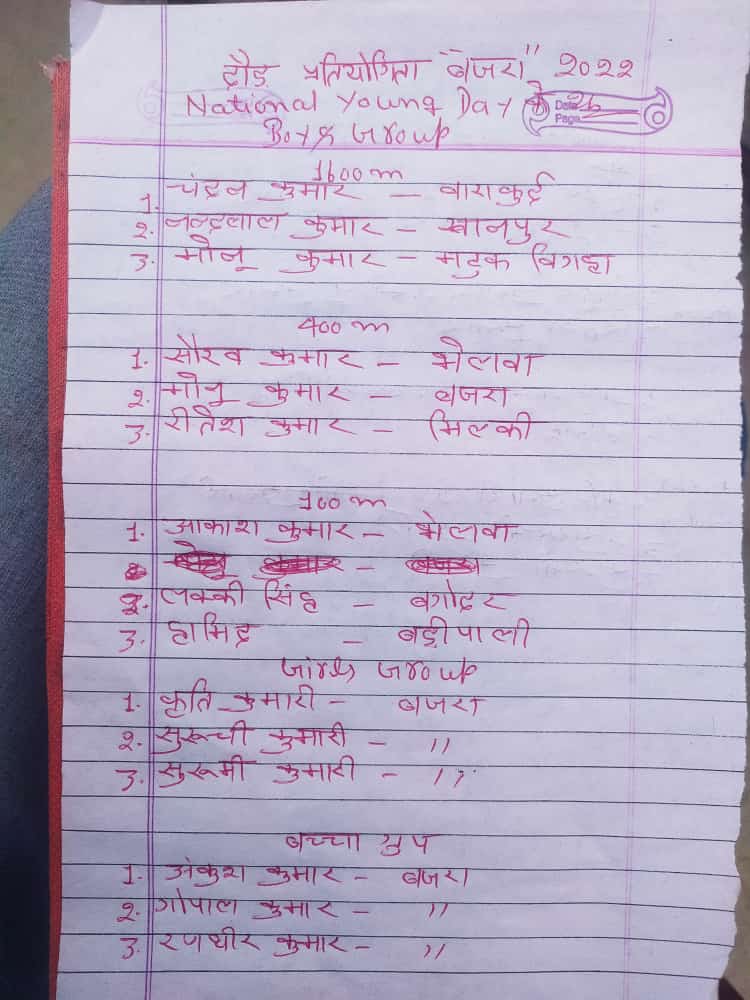 दौड़ प्रतियोगिता "बजरा" 2022
National Young Day के
Date
Page
Boys Group
1600 m
1. चंदन कुमार – बाराकुर्द
2. नन्दलाल कुमार – खानपुर
3. मोनू कुमार – मटुक बिगहा
400 m
1. सौरव कुमार – भेलवा
2. मोनु कुमार – बजरा
3. रीतेश कुमार – मिल्की
100 m
1. आकाश कुमार – भेलवा
2. लक्की सिंह – बगोदर
3. हामिद – बड़ीपाली
Girls Group
1. कृति कुमारी – बजरा
2. सुरूची कुमारी – "
3. सुरूमी कुमारी – "
बच्चा ग्रुप
1. अंकुश कुमार – बजरा
2. गोपाल कुमार – "
3. रणधीर कुमार – "